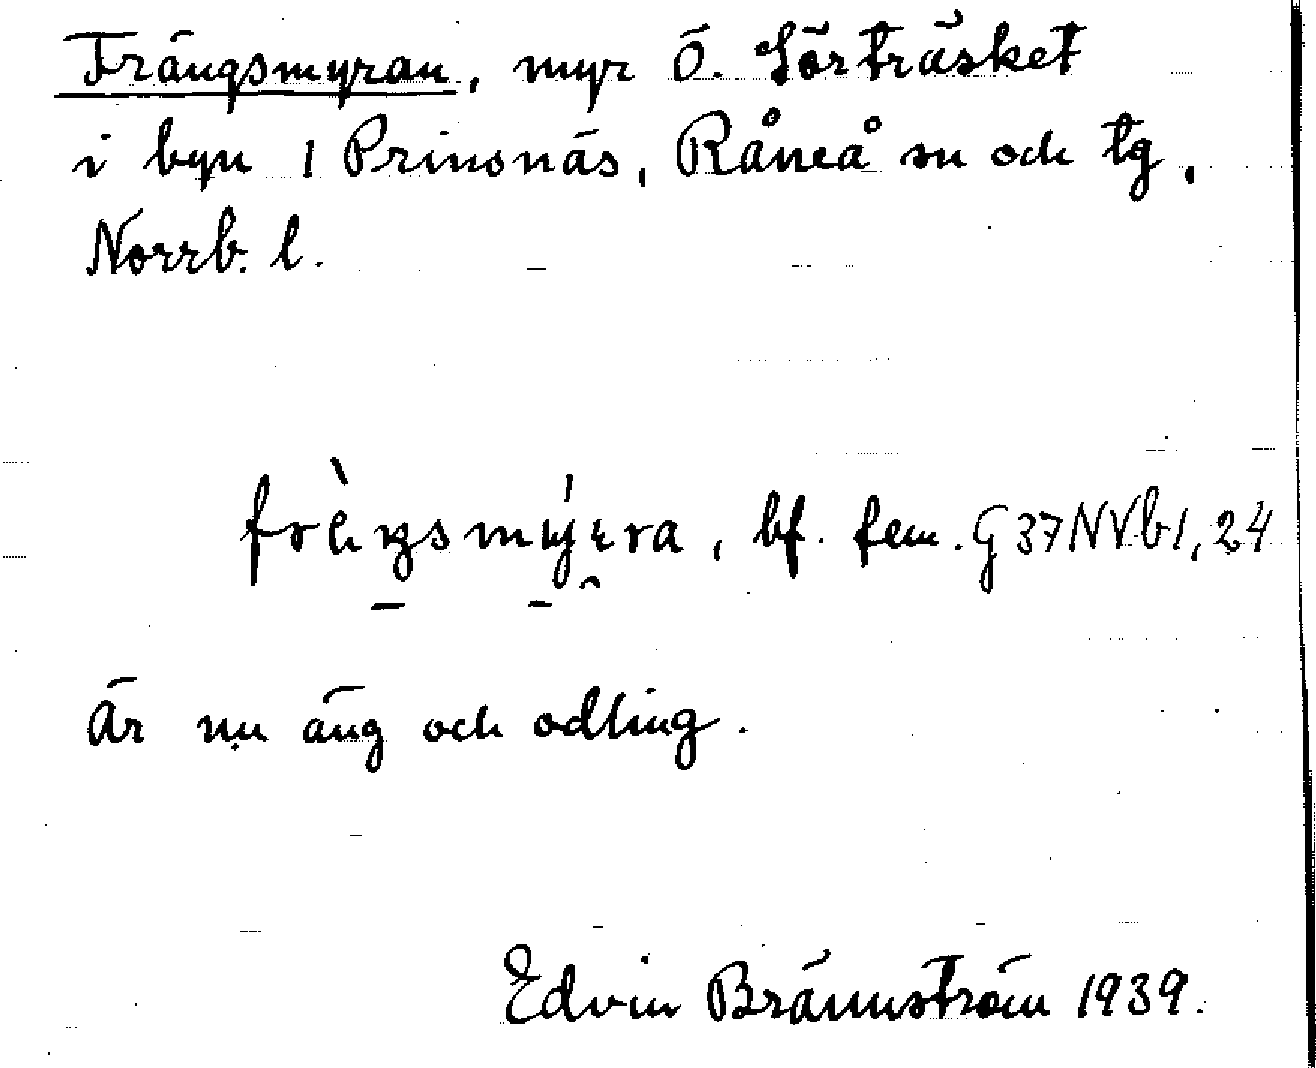 Frängsmyran, myr Ö. Sörträsket
i byn 1 Prinsnäs, Råneå sn och tg,
Norrb. l.
bf. fem. G37NVb1,24
Är nu äng och odling.
Edvin Brännström 1939.